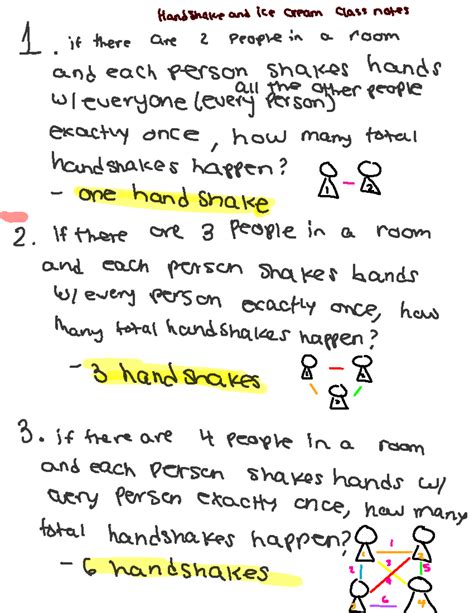 Handshake and ice cream class notes
1. if there are 2 people in a room
and each person shakes hands
all the other people
w/ everyone (every person)
exactly once, how many total
handshakes happen?
- one handshake
1 - 2
2. If there are 3 people in a room
and each person shakes hands
w/ every person exactly once, how
many total handshakes happen?
- 3 handshakes
3. if there are 4 people in a room
and each person shakes hands w/
every person exactly once, how many
total handshakes happen?
- 6 handshakes
1
2
3
5
6
4